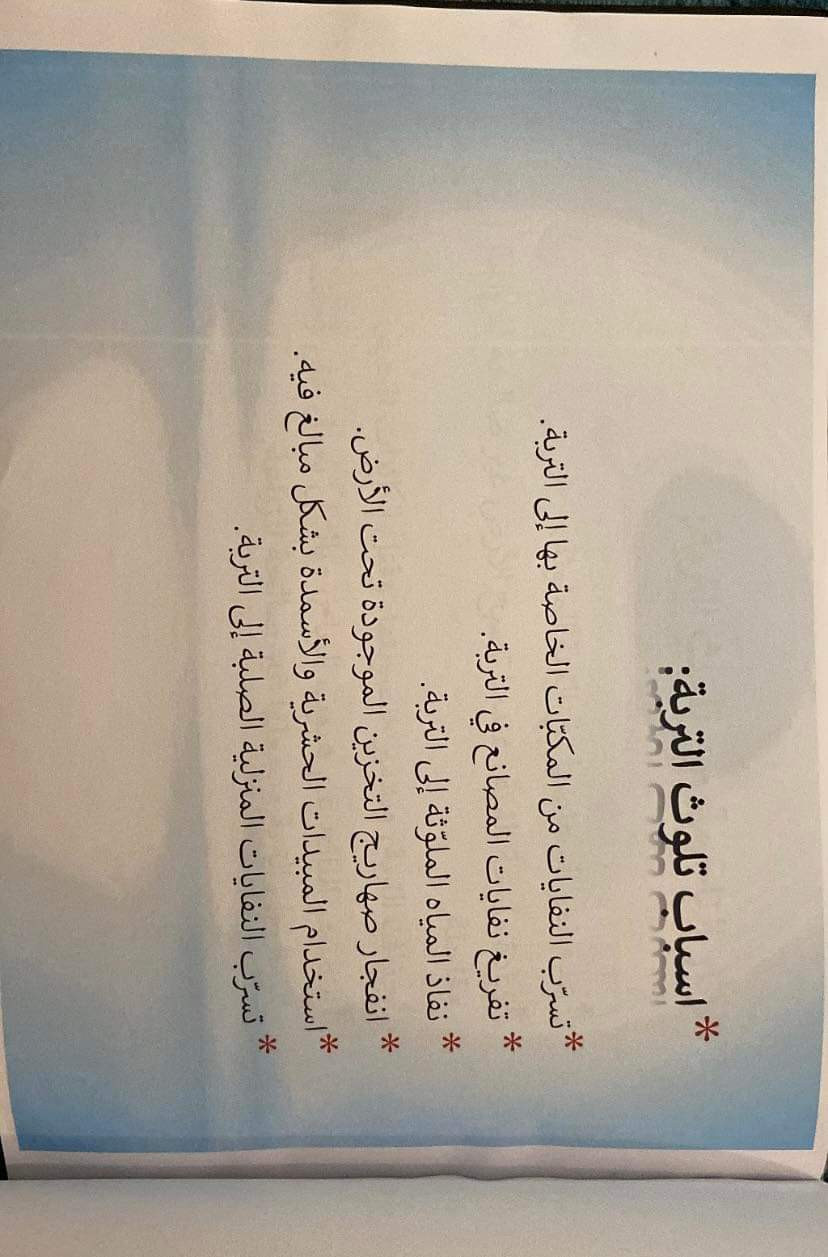 * اسباب تلوث التربة:
* تسرّب النفايات من المكبّات الخاصة بها إلى التربة.
* تفريغ نفايات المصانع في التربة.
* نفاذ المياه الملوّثة إلى التربة.
* انفجار صهاريج التخزين الموجودة تحت الأرض.
* استخدام المبيدات الحشرية والأسمدة بشكل مبالغ فيه.
* تسرّب النفايات المنزلية الصلبة إلى التربة.